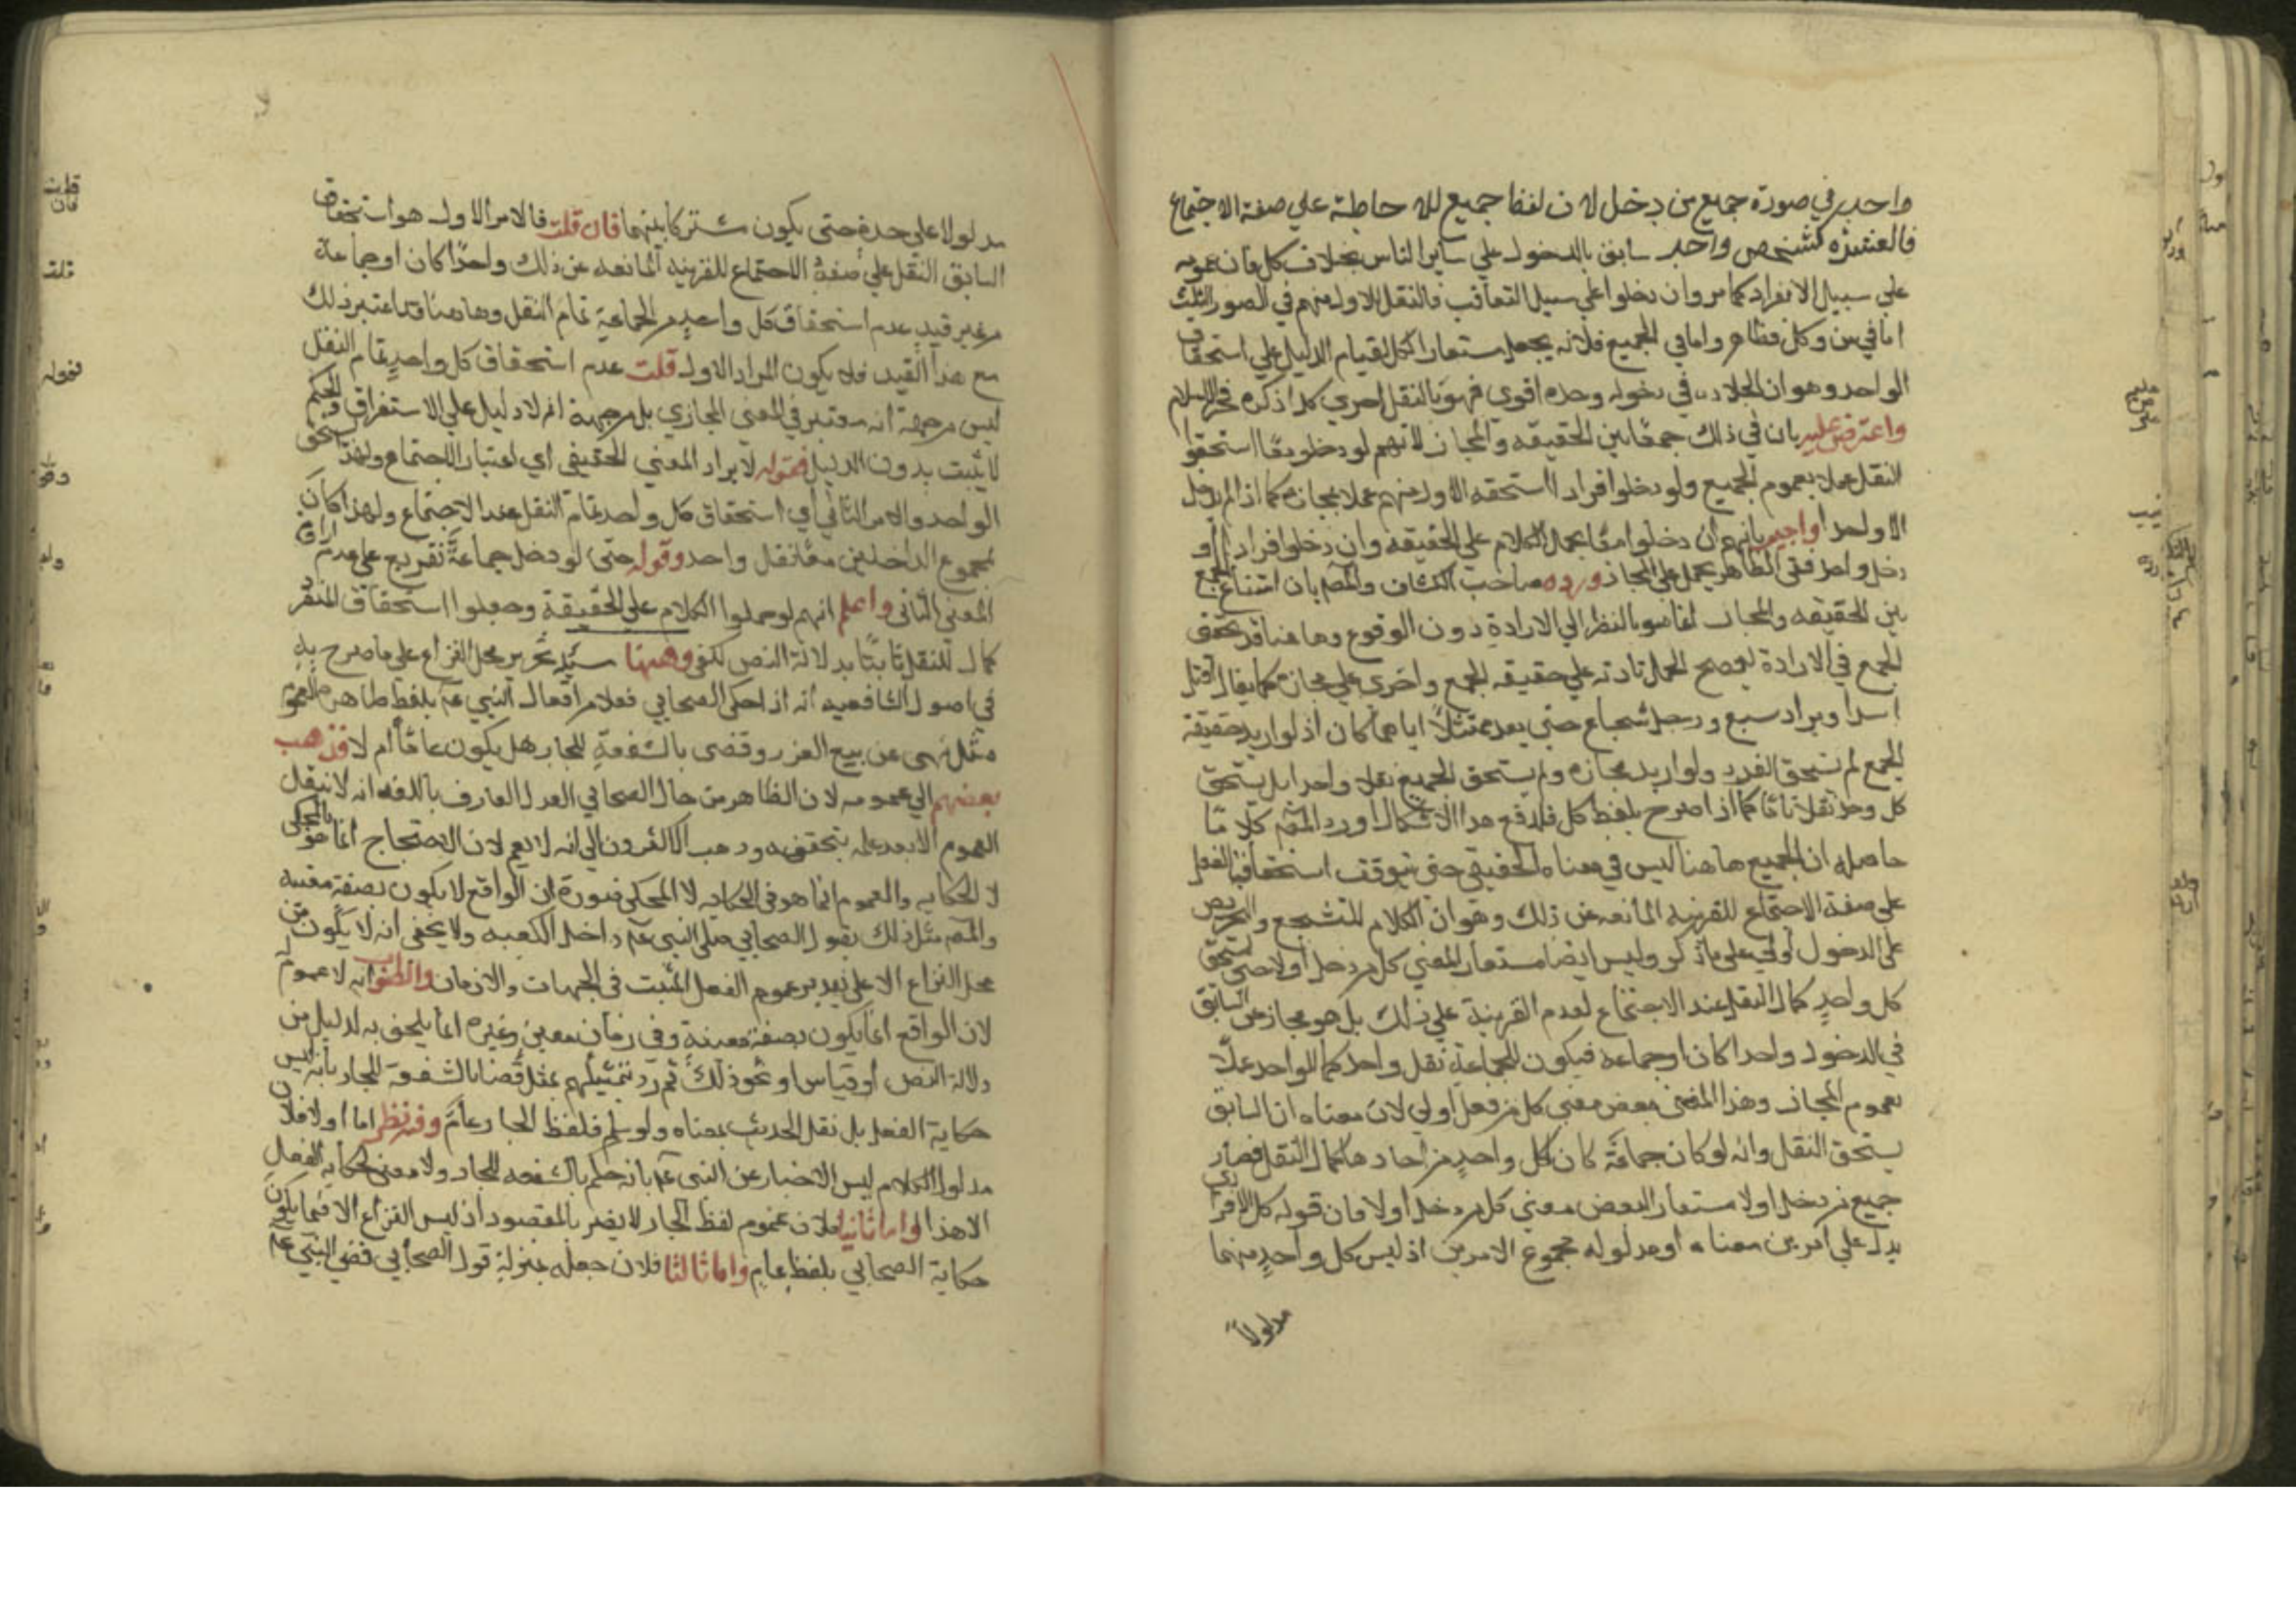 واحد في صورة جميع من دخل لان لفظ جميع للاحاطة علي صفة الاجتماع
فالعشرة كشخص واحد سابق بالدخول علي ساير الناس بخلاف كل فان عمومه
علي سبيل الانفراد كما مر وان دخلوا علي سبيل التعاقب فالنفل للاول منهم في الصور الثلث
اما في من وكل فظاهر واما في الجميع فلانه يجعل مستعارا لكل لقيام الدليل علي استحقاق
الواحد وهو ان الجلادة في دخوله وحده اقوي فهو بالنفل احري كذا ذكره فخر الاسلام
واعترض عليه بان في ذلك جمعا بين الحقيقه والمجاز لانهم لو دخلوا معا استحقوا
النفل عملا بعموم الجميع ولو دخلوا فرادا استحقه الاول منهم عملا بمجازه كما اذا لم يدخل
الا واحدا واجيب بانهم ان دخلوا معا يحمل الكلام علي الحقيقه وان دخلوا فرادا او
دخل واحد فقط الظاهر يحمل علي المجاز ورده صاحب الكشاف والمص بان امتناع الجمع
بين الحقيقه والمجاز انما هو بالنظر الي الارادة دون الوقوع وهاهنا قد تحقق
الجمع في الارادة ليصح الحمل تارة علي حقيقه الجمع واخري علي مجازه كما يقال اقتل
اسدا ويراد سبع ورجل شجاع حتي يعد ممتثلا اياهما كان اذ لو اريد حقيقة
الجمع لم يستحق الفرد ولو اريد مجازه لم يستحق الجميع نفلا واحدا بل يستحق
كل واحد نفلا تاما كما اذا صرح بلفظ كل فلدفع هذا الاشكال اورد المص كلاما
حاصله ان الجميع هاهنا ليس في معناه الحقيقي حتي يتوقف استحقاق النفل
علي صفة الاجتماع للقرينه المانعه عن ذلك وهو ان الكلام للتشجيع والتحريض
علي الدخول اولا علي ما ذكر وليس ايضا مستعارا لمعني كل من دخل اولا حتي يستحق
كل واحد كمال النفل عند الاجتماع لعدم القرينة علي ذلك بل هو مجاز عن السابق
في الدخول واحدا كان او جماعه فيكون للجماعة نفل واحد كما للواحد عملا
بعموم المجاز وهذا المعني بعض معني كل من فعل اولي لان معناه ان السابق
يستحق النفل وانه لو كان جماعة كان لكل واحد من احادها كمال النفل فصار
جميع من دخل اولا مستعارا لبعض معني كل من دخل اولا فان قوله كل الافرادي
يدل علي امرين معناه ان مدلوله مجموع الامرين اذ ليس كل واحد منهما
مدلولا
مدلولا علي حدة حتي يكون مشتركا بينهما فان قلت فالامر الاول هو استحقاق
السابق النفل علي صفة الاجتماع للقرينه المانعه عن ذلك واحدا كان او جماعة
من غير قيد عدم استحقاق كل واحد من الجماعة تمام النفل وهاهنا قد اعتبر ذلك
مع هذا القيد فلا يكون المراد الاول قلت عدم استحقاق كل واحد تمام النفل
ليس من جهة انه معتبر في المعني المجازي بل من جهة انه لا دليل علي الاستغراق والحكم
لا يثبت بدون الدليل فقوله لا يراد المعني الحقيقي اي اعتبار الاجتماع ولهذا يستحق
الواحد والامر الثاني اي استحقاق كل واحد تمام النفل عند الاجتماع ولهذا كان
لمجموع الداخلين معا نفل واحد وقوله حتي لو دخل جماعة تفريع علي عدم ارادة
المعني الثاني واعلم انهم لو حملوا الكلام علي الحقيقة وجعلوا استحقاق المنفرد
كمال النفل ثابتا بدلالة النص لكفي وههنا مسئلة تحرير محل النزاع علي ما صرح به
في اصول الشافعيه انه اذا حكي الصحابي فعلا من افعال النبي عم بلفظ ظاهره العموم
مثل نهي عن بيع الغرر وقضي بالشفعة للجار هل يكون عاما ام لا فذهب
بعضهم الي عمومه لان الظاهر من حال الصحابي العدل العارف باللغه انه لا ينقل
العموم الا بعد علمه بتحققه وذهب الاكثرون الي انه لا يعم لان الاحتجاج انما هو بالمحكي
لا الحكايه والعموم انما هو في الحكايه لا المحكي ضرورة ان الواقع لا يكون بصفة معينه
والمص مثل ذلك بقول الصحابي صلي النبي عم داخل الكعبه ولا يخفي انه لا يكون من
محل النزاع الا علي تقدير عموم الفعل المثبت في الجهات والازمان والظواب انه لا عموم له
لان الواقع انما يكون بصفة معينة وفي زمان معين وغيره انما يلحق به لدليل من
دلالة النص او قياس او نحو ذلك ثم رد تمثيلهم بمثل قضا بالشفعة للجار بانه ليس
حكاية الفعل بل نقل الحديث بمعناه ولو سلم فلفظ الجار عام وفيه نظر اما اولا فلان
مدلول الكلام ليس الاخبار عن النبي عم بانه حكم بالشفعه للجار ولا معني لحكاية الفعل
الا هذا واما ثانيا فلان عموم لفظ الجار لا يضر بالمقصود اذ ليس النزاع الا فيما يكون
حكاية الصحابي بلفظ عام واما ثالثا فلان جعله بمنزلة قول الصحابي قضي النبي عم